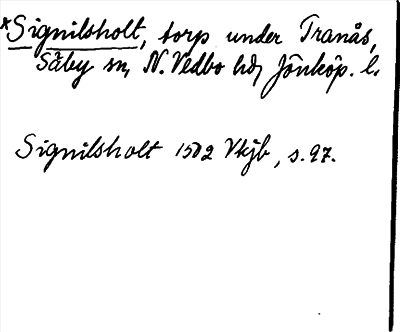 *Signilsholt, torp under Tranås,
Säby sn, N. Vedbo hd, Jönköp. l.
Signilsholt 1502 Vkjb, s. 97.